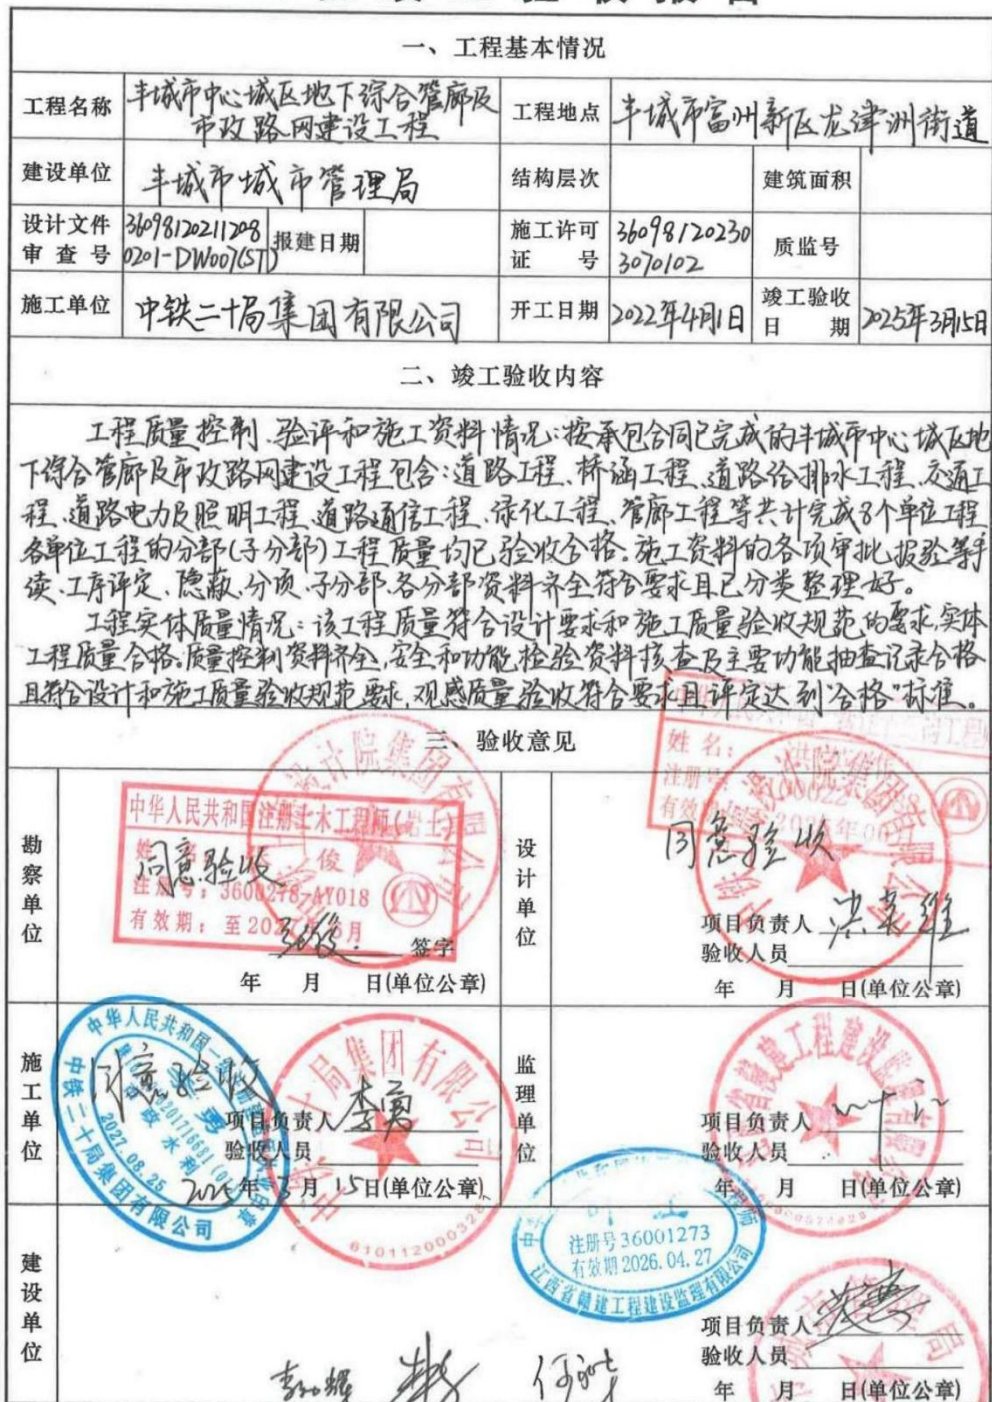 一、工程基本情况
工程名称 丰城市中心城区地下综合管廊及市政路网建设工程 工程地点 丰城市富州新区龙津洲街道
建设单位 丰城市城市管理局 结构层次 建筑面积
设计文件审查号 360981202112080201-DW007(ST) 报建日期 施工许可证号 360981202303070102 质监号
施工单位 中铁二十局集团有限公司 开工日期 2022年4月1日 竣工验收日期 2025年3月15日
二、竣工验收内容
工程质量控制、验评和施工资料情况:按承包合同已完成的丰城市中心城区地
下综合管廊及市政路网建设工程包含:道路工程、桥涵工程、道路给排水工程、交通工
程、道路电力及照明工程、道路通信工程、绿化工程、管廊工程等共计完成8个单位工程,
各单位工程的分部(子分部)工程质量均已验收合格。施工资料的各项审批报验等手
续、工序评定、隐蔽、分项、子分部、各分部资料齐全符合要求且已分类整理好。
工程实体质量情况:该工程质量符合设计要求和施工质量验收规范的要求,实体
工程质量合格。质量控制资料齐全,安全和功能检验资料核查及主要功能抽查记录合格
且符合设计和施工质量验收规范要求,观感质量验收符合要求且评定达到“合格”标准。
三、验收意见
勘察单位
中华人民共和国注册土木工程师(岩土)
同意验收
注册号:3600278-AY018
有效期:至202 月
签字
年 月 日(单位公章)
设计院集团有限公司
设计单位
姓名:
注册号
有效期
同意验收
项目负责人
验收人员
年 月 日(单位公章)
施工单位
同意验收
中华人民共和国一级
市政 水利
2027.08.25
中铁二十局集团有限公司
项目负责人 李勇
验收人员
2025年3月15日(单位公章)
十局集团有限公司
监理单位
省赣建工程建设监理有限公司
项目负责人
验收人员
年 月 日(单位公章)
注册号36001273
有效期2026.04.27
江西省赣建工程建设监理有限公司
建设单位
项目负责人
验收人员
年 月 日(单位公章)
城市管理局